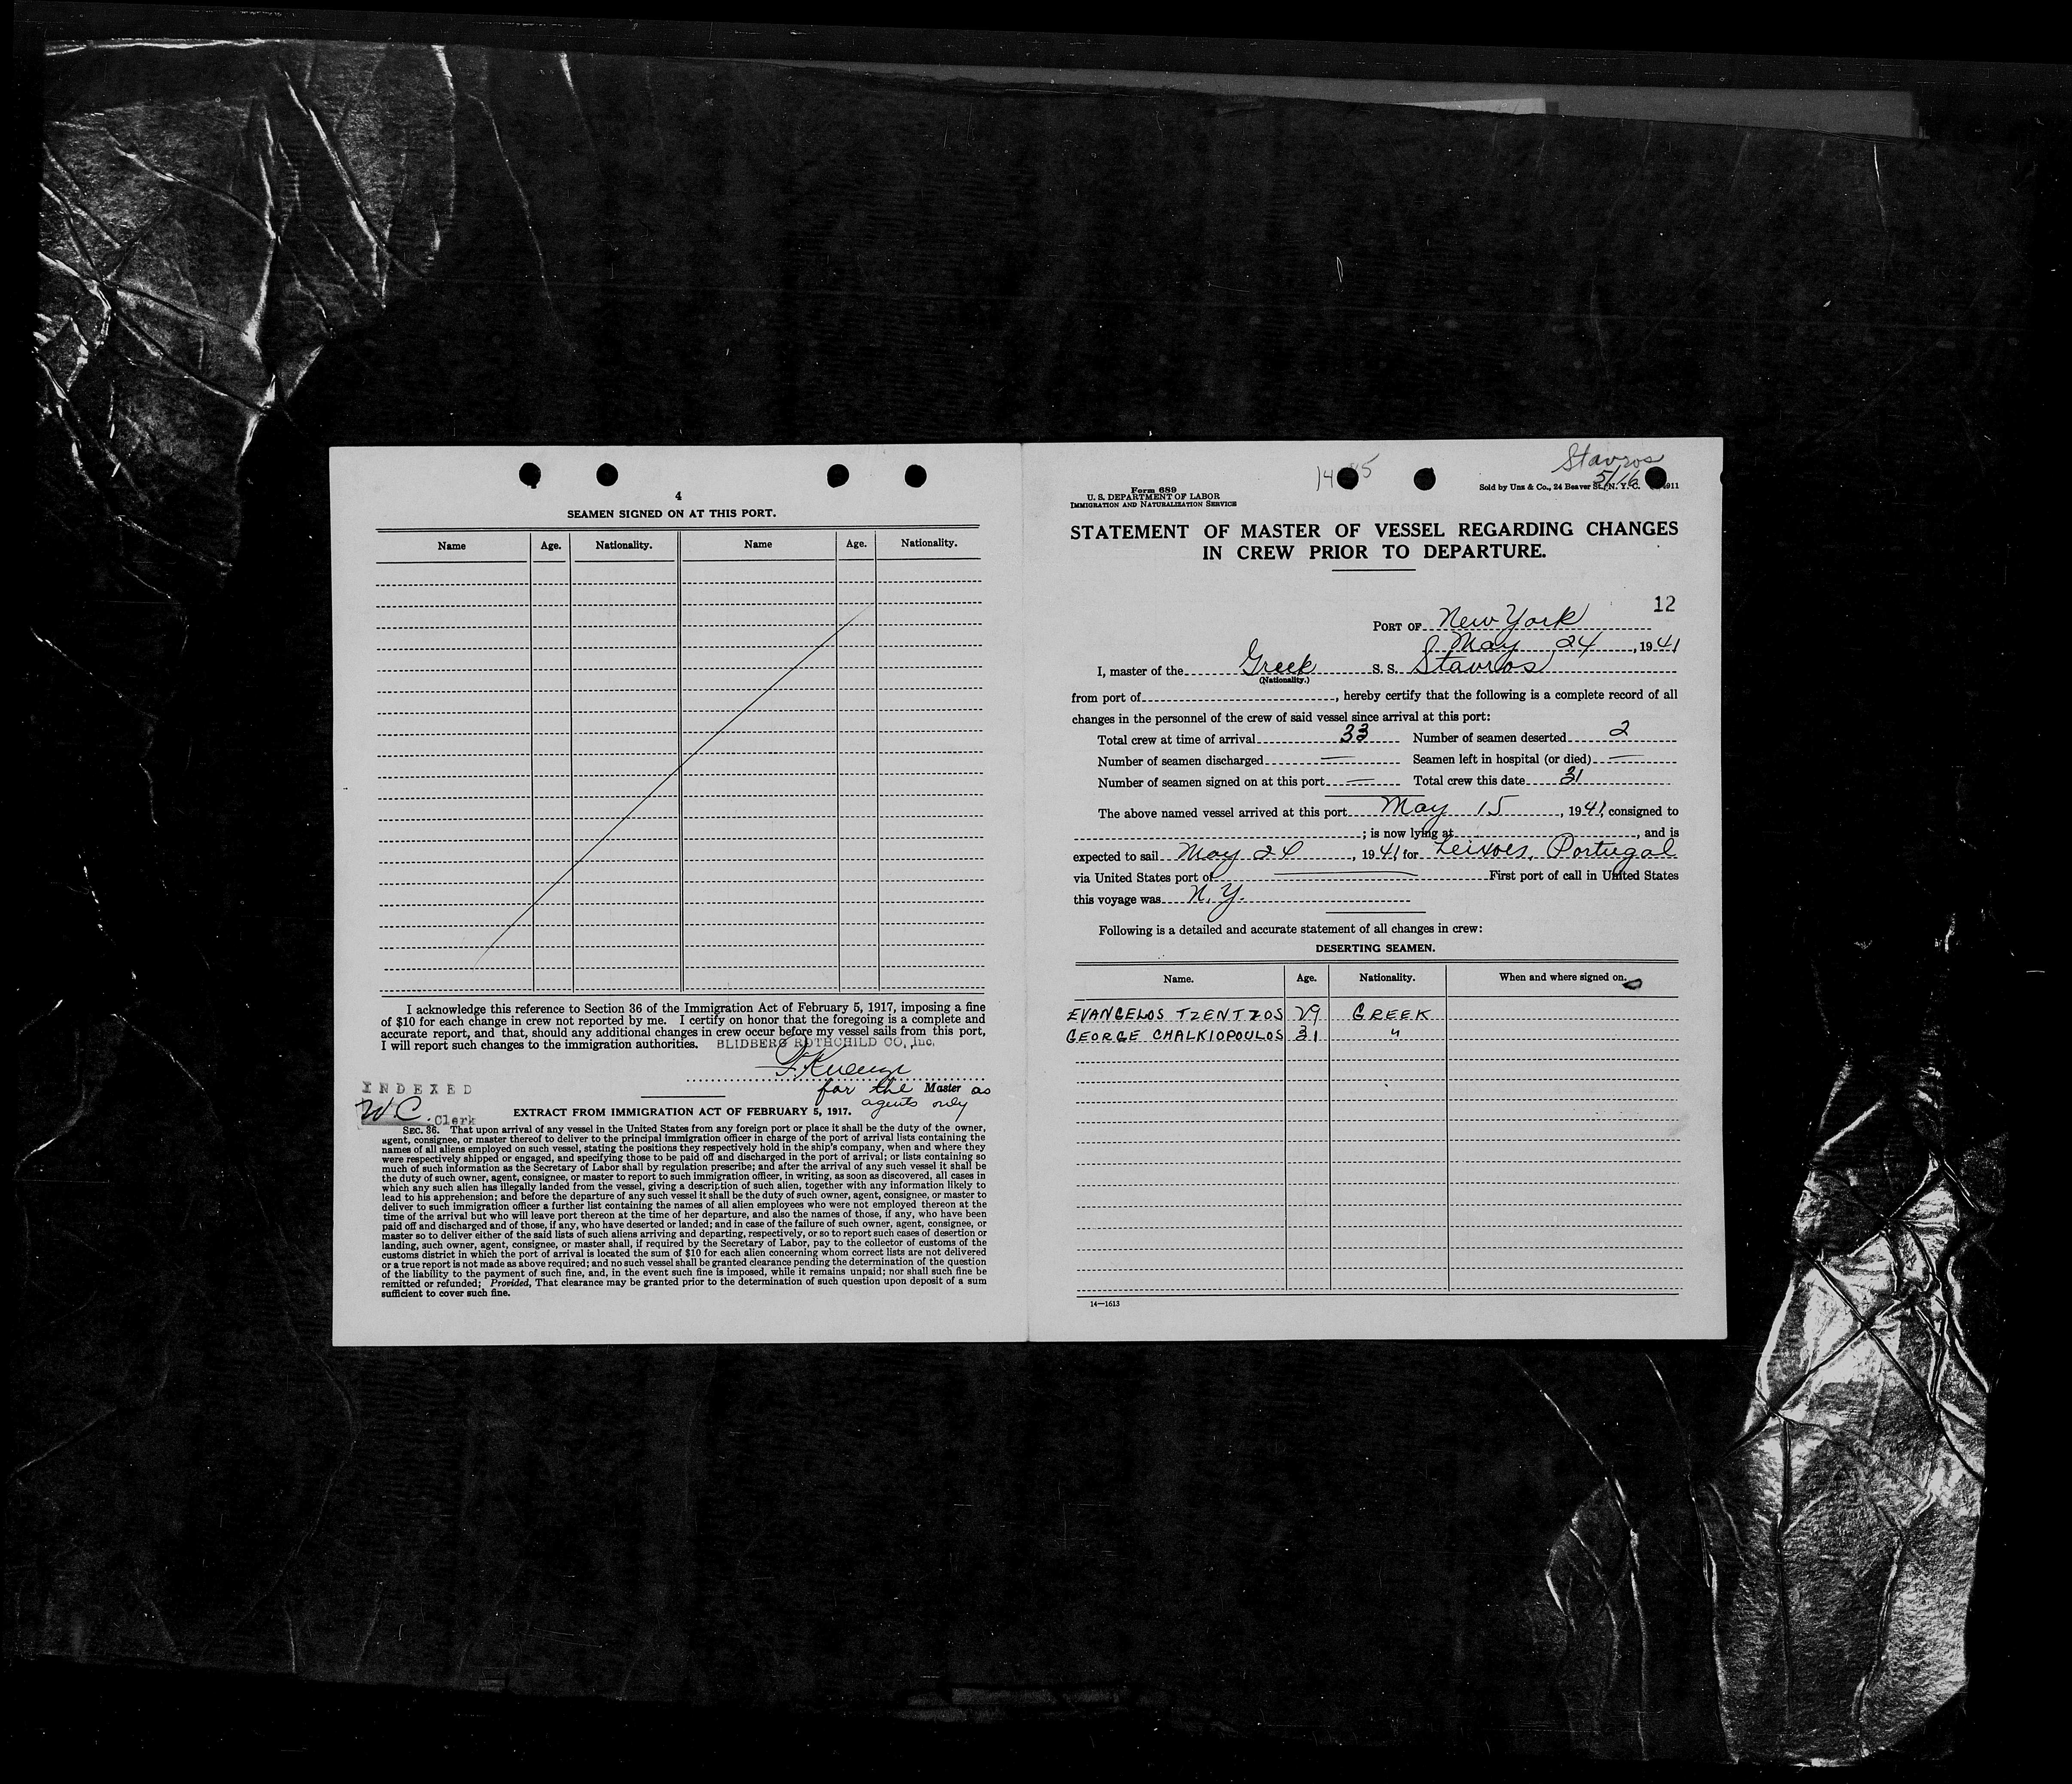 4
SEAMEN SIGNED ON AT THIS PORT.
Name Age. Nationality. Name Age. Nationality.
I acknowledge this reference to Section 36 of the Immigration Act of February 5, 1917, imposing a fine
of $10 for each change in crew not reported by me. I certify on honor that the foregoing is a complete and
accurate report, and that, should any additional changes in crew occur before my vessel sails from this port,
I will report such changes to the immigration authorities. BLIDBERG ROTHCHILD CO, Inc.
for the Master as
agents only
INDEXED
W.C. Clerk
EXTRACT FROM IMMIGRATION ACT OF FEBRUARY 5, 1917.
SEC. 36. That upon arrival of any vessel in the United States from any foreign port or place it shall be the duty of the owner,
agent, consignee, or master thereof to deliver to the principal immigration officer in charge of the port of arrival lists containing the
names of all aliens employed on such vessel, stating the positions they respectively hold in the ship's company, when and where they
were respectively shipped or engaged, and specifying those to be paid off and discharged in the port of arrival; or lists containing so
much of such information as the Secretary of Labor shall by regulation prescribe; and after the arrival of any such vessel it shall be
the duty of such owner, agent, consignee, or master to report to such immigration officer, in writing, as soon as discovered, all cases in
which any such alien has illegally landed from the vessel, giving a description of such alien, together with any information likely to
lead to his apprehension; and before the departure of any such vessel it shall be the duty of such owner, agent, consignee, or master to
deliver to such immigration officer a further list containing the names of all alien employees who were not employed thereon at the
time of the arrival but who will leave port thereon at the time of her departure, and also the names of those, if any, who have been
paid off and discharged and of those, if any, who have deserted or landed; and in case of the failure of such owner, agent, consignee, or
master so to deliver either of the said lists of such aliens arriving and departing, respectively, or so to report such cases of desertion or
landing, such owner, agent, consignee, or master shall, if required by the Secretary of Labor, pay to the collector of customs of the
customs district in which the port of arrival is located the sum of $10 for each alien concerning whom correct lists are not delivered
or a true report is not made as above required; and no such vessel shall be granted clearance pending the determination of the question
of the liability to the payment of such fine, and, in the event such fine is imposed, while it remains unpaid; nor shall such fine be
remitted or refunded; Provided, That clearance may be granted prior to the determination of such question upon deposit of a sum
sufficient to cover such fine.
Stavros
5/16
Form 689
U. S. DEPARTMENT OF LABOR
IMMIGRATION AND NATURALIZATION SERVICE
Sold by Unz & Co., 24 Beaver St., N. Y. C.
STATEMENT OF MASTER OF VESSEL REGARDING CHANGES
IN CREW PRIOR TO DEPARTURE.
12
PORT OF New York
May 24, 1941
I, master of the Greek S. S. Stavros
(Nationality.)
from port of , hereby certify that the following is a complete record of all
changes in the personnel of the crew of said vessel since arrival at this port:
Total crew at time of arrival 33 Number of seamen deserted 2
Number of seamen discharged — Seamen left in hospital (or died) —
Number of seamen signed on at this port — Total crew this date 31
The above named vessel arrived at this port May 15, 1941, consigned to
; is now lying at , and is
expected to sail May 24, 1941 for Leixoes, Portugal
via United States port of — First port of call in United States
this voyage was N.Y.
Following is a detailed and accurate statement of all changes in crew:
DESERTING SEAMEN.
Name. Age. Nationality. When and where signed on.
EVANGELOS TZENTZOS 29 GREEK
GEORGE CHALKIOPOULOS 31 "
14—1613